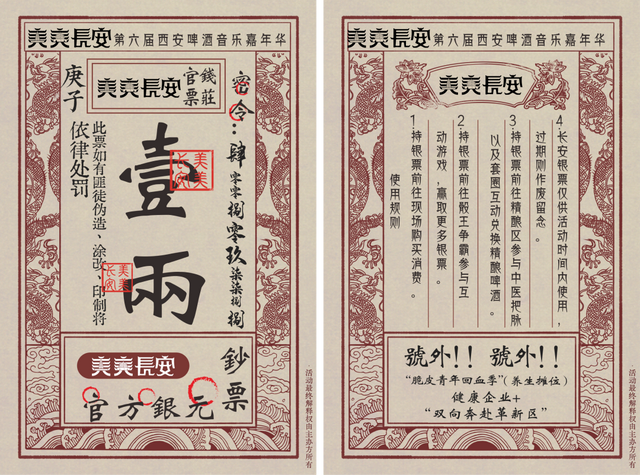 美美長安 第六届西安啤酒音乐嘉年华
庚子
美美長安
錢莊
官票
密令：肆零零捌零玖柒柒捌捌
壹兩
美美长安
美美长安
此票如有匪徒伪造、涂改、印制将
依律处罚
美美長安
鈔票
官方銀元
活动最终解释权由主办方所有
美美長安 第六届西安啤酒音乐嘉年华
美美長安
使用规则
1 持银票前往现场购买消费。
2 持银票前往骰王争霸参与互
动游戏，赢取更多银票。
3 持银票前往精酿区参与中医把脉
以及套圈互动兑换精酿啤酒。
4 长安银票仅供活动时间内使用，
过期则作废留念。
號外!! 號外!!
“脆皮青年回血季”(养生摊位)
健康企业+
“双向奔赴革新区”
活动最终解释权由主办方所有